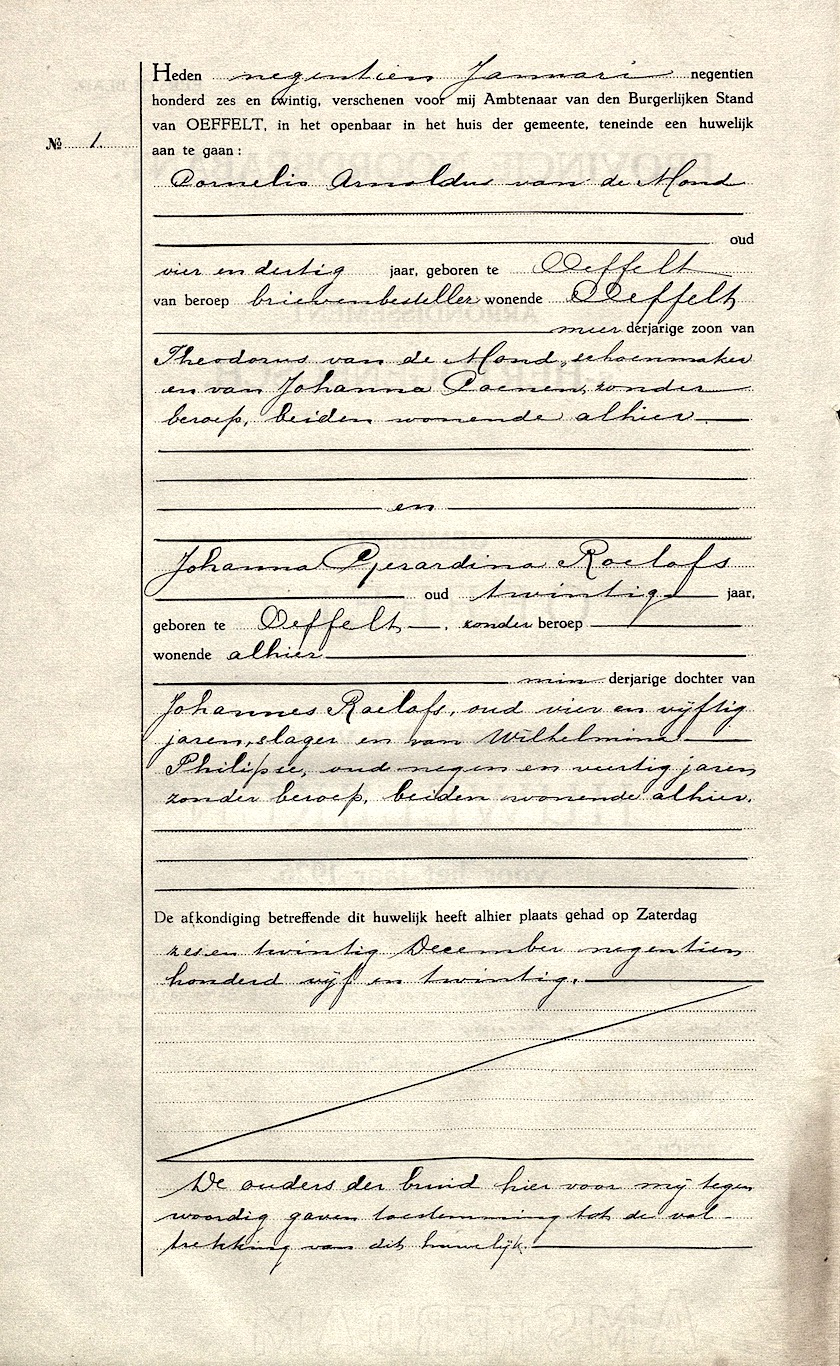 Heden negentien Januari negentien
honderd zes en twintig, verschenen voor mij Ambtenaar van den Burgerlijken Stand
van OEFFELT, in het openbaar in het huis der gemeente, teneinde een huwelijk
№ 1.
aan te gaan:
Cornelis Arnoldus van de Mond
oud
vier en dertig jaar, geboren te Oeffelt
van beroep brievenbesteller wonende Oeffelt
meerderjarige zoon van
Theodorus van de Mond, schoenmaker
en van Johanna Coenen, zonder
beroep, beiden wonende alhier
en
Johanna Gerardina Roelofs
oud twintig jaar,
geboren te Oeffelt, zonder beroep
wonende alhier
minderjarige dochter van
Johannes Roelofs, oud vier en vijftig
jaren, slager en van Wilhelmina
Philipse, oud negen en veertig jaren
zonder beroep, beiden wonende alhier.
De afkondiging betreffende dit huwelijk heeft alhier plaats gehad op Zaterdag
zes en twintig December negentien
honderd vijf en twintig.
De ouders der bruid hier voor mij tegen
woordig gaven toestemming tot de vol-
trekking van dit huwelijk.